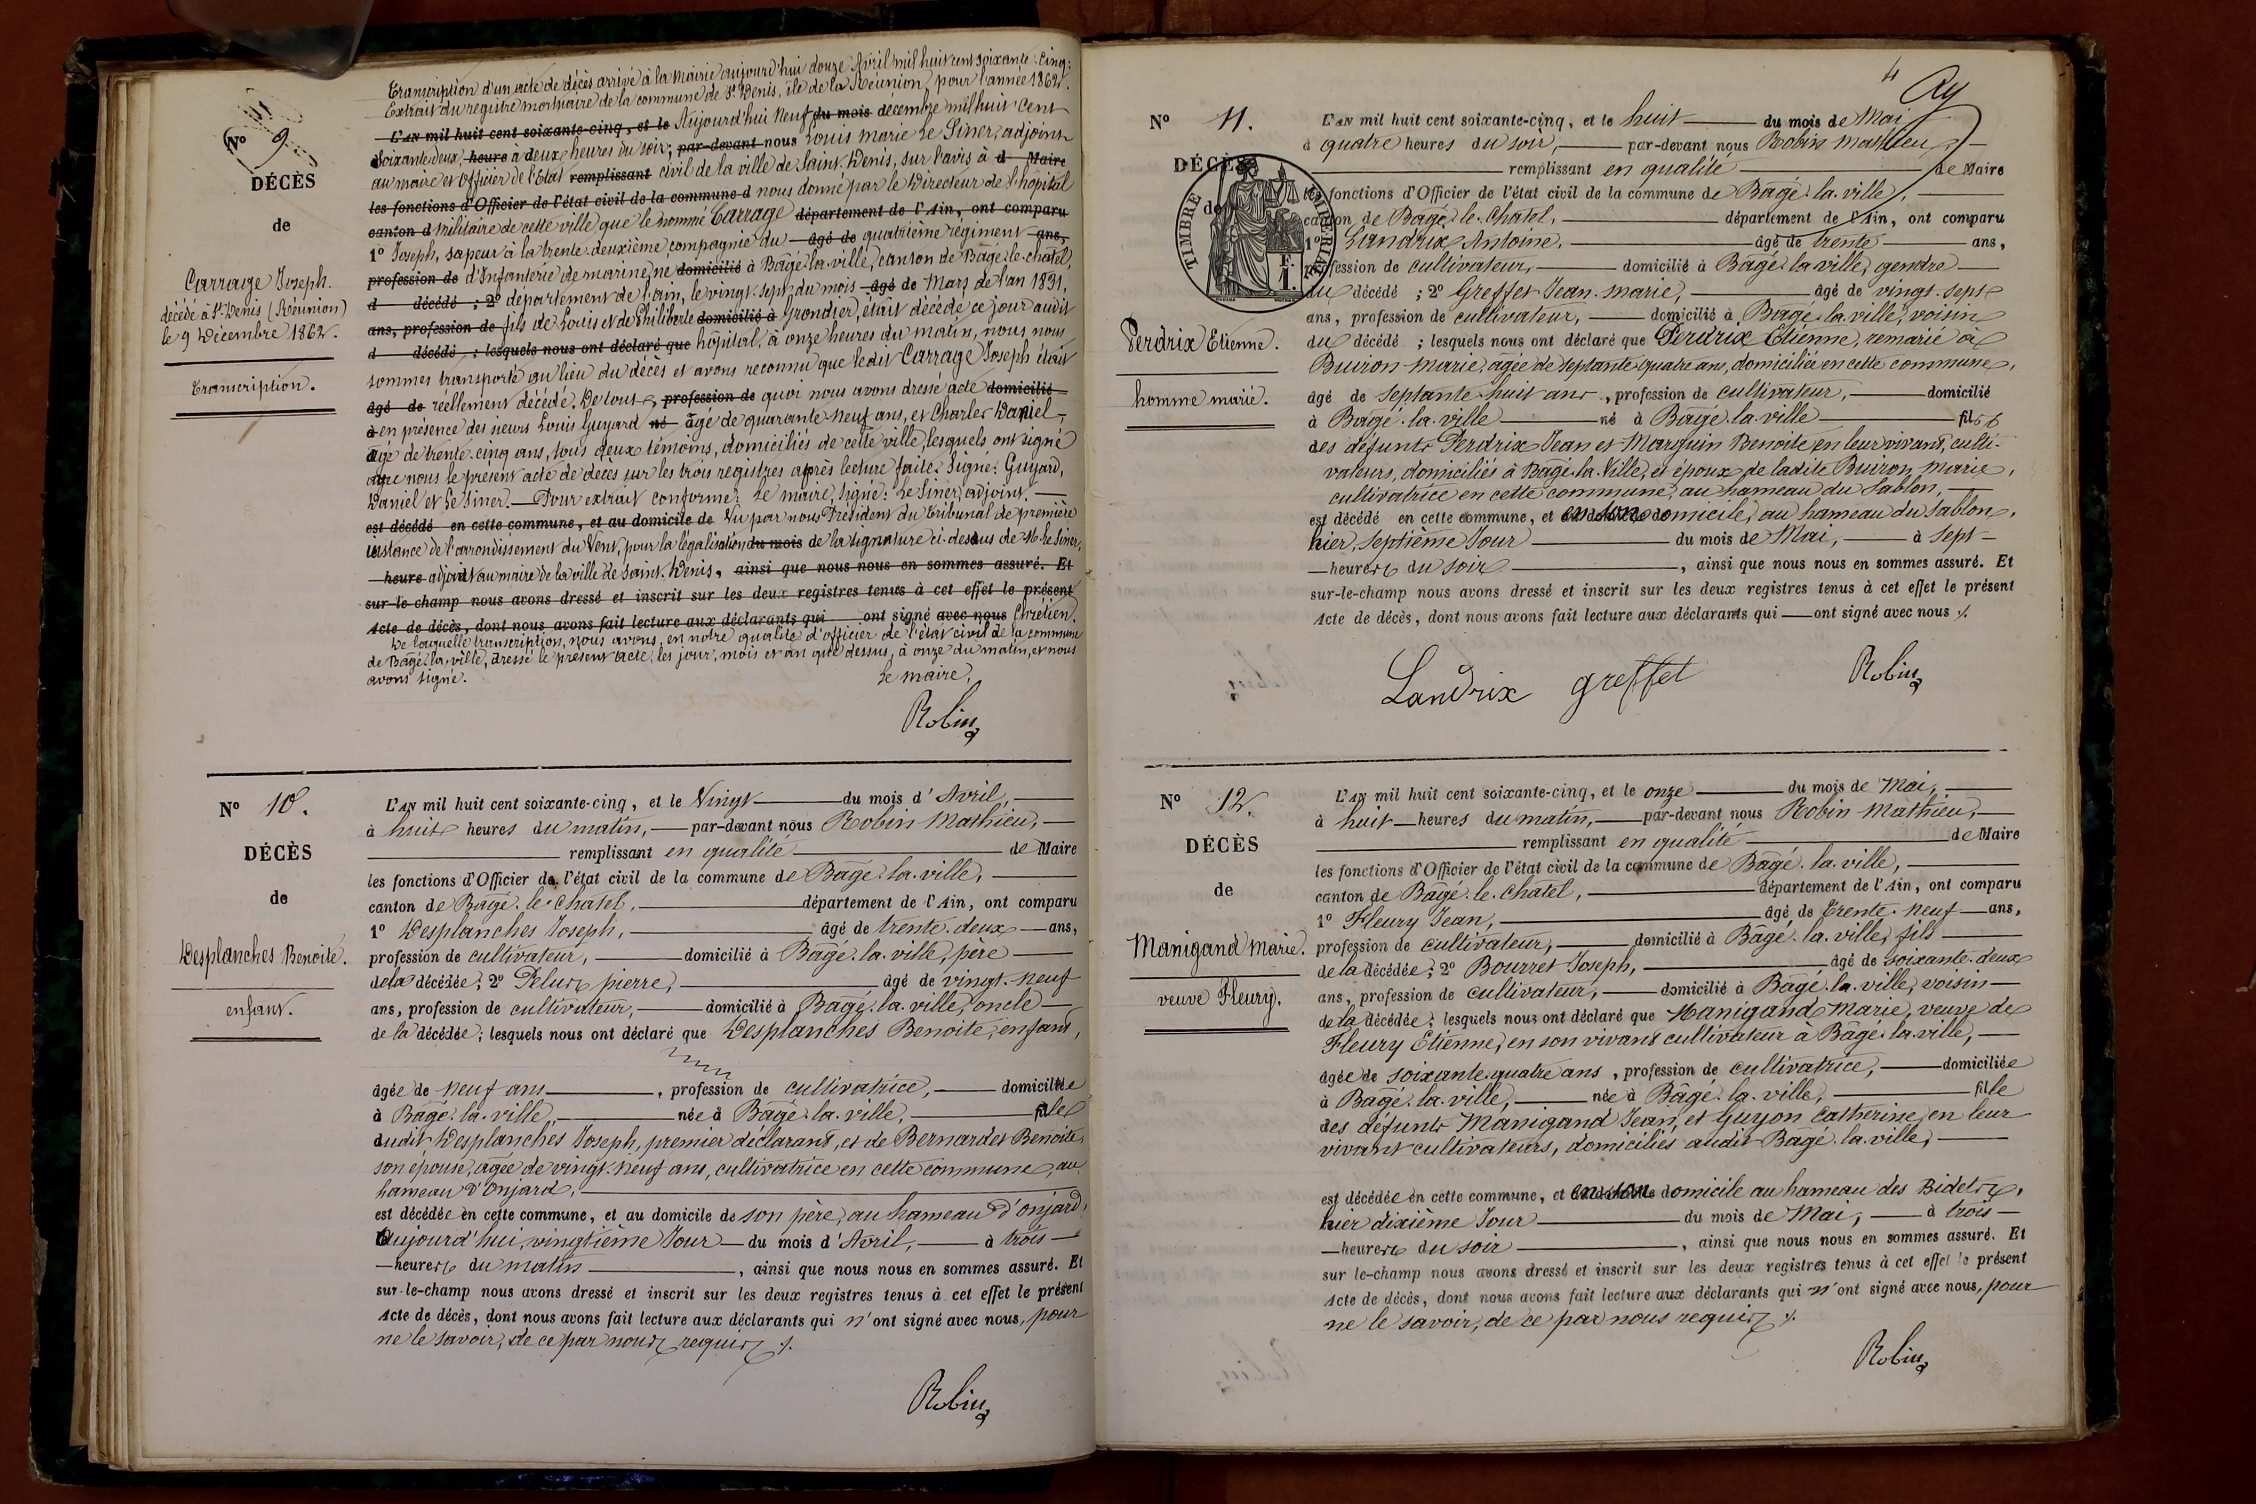 Transcription d'un acte de décès arrivé à la Mairie aujourd'hui douze Avril mil huit cent soixante-cinq:
Extrait du registre mortuaire de la commune de St Denis, île de la Réunion, pour l'année 1862.
L'AN mil huit cent soixante-cinq, et le Aujourd'hui neuf du mois décembre mil huit cent
soixante deux, heure à deux heures du soir; par-devant nous Louis marie Le Siner, adjoint
au maire et Officier de l'Etat remplissant civil de la ville de Saint-Denis, sur l'avis à d Maire
les fonctions d'Officier de l'état civil de la commune d nous donné par le Directeur de l'hôpital
canton d militaire de cette ville que le nommé Carrage département de l'Ain, ont comparu
1º Joseph, sapeur à la trente-deuxième compagnie du âgé de quatrième régiment ans,
profession de d'Infanterie de marine, né domicilié à Bâgé-la-ville, canton de Bâgé-le-châtel,
d décédé ; 2º département de l'ain, le vingt-sept du mois âgé de Mars de l'an 1831,
ans, profession de fils de Louis et de Philiberte domicilié à Grondier, était décédé ce jour audit
d décédé ; lesquels nous ont déclaré que hôpital, à onze heures du matin, nous nous
sommes transporté au lieu du décès et avons reconnu que ledit Carrage Joseph était
âgé de réellement décédé. De tout, profession de quoi nous avons dressé acte domicilié
à en présence des sieurs Louis Guyard né âgé de quarante-neuf ans, et Charles Daniel
âgé de trente-cinq ans, tous deux témoins, domiciliés de cette ville, lesquels ont signé
avec nous le présent acte de décès sur les trois registres après lecture faite. Signé: Guyard,
Daniel et Le Siner. — Pour extrait conforme: Le maire, signé: Le Siner, adjoint.
est décédé en cette commune, et au domicile de Vu par nous Président du tribunal de première
instance de l'arrondissement du Vent, pour la légalisation du mois de la signature ci-dessus de M. Le Siner,
heure adjoint au maire de la ville de Saint-Denis, ainsi que nous nous en sommes assuré. Et
sur-le-champ nous avons dressé et inscrit sur les deux registres tenus à cet effet le présent
Acte de décès, dont nous avons fait lecture aux déclarants qui ont signé avec nous Chrétien.
De laquelle transcription, nous avons, en notre qualité d'officier de l'état civil de la commune
de Bâgé-la-ville, dressé le présent acte, les jour, mois et an que dessus, à onze du matin, et nous
avons signé.
Le maire,
Robin
Nº 9
DÉCÈS
de
Carrage Joseph.
décédé à St Denis (Réunion)
le 9 Décembre 1862.
transcription.
Nº 10.
DÉCÈS
de
Desplanches Benoite.
enfant.
L'AN mil huit cent soixante-cinq, et le Vingt du mois d'Avril,
à huit heures du matin, par-devant nous Robin Mathieu,
remplissant en qualité de Maire
les fonctions d'Officier de l'état civil de la commune de Bâgé-la-ville,
canton de Bâgé-le-Châtel, département de l'Ain, ont comparu
1º Desplanches Joseph, âgé de trente-deux ans,
profession de cultivateur, domicilié à Bâgé-la-ville, père
de la décédée; 2º Pelux pierre, âgé de vingt-neuf
ans, profession de cultivateur, domicilié à Bâgé-la-ville, oncle
de la décédée; lesquels nous ont déclaré que Desplanches Benoite, enfant,
âgée de neuf ans, profession de cultivatrice, domiciliée
à Bâgé-la-ville, née à Bâgé-la-ville, fille
dudit Desplanches Joseph, premier déclarant, et de Bernardet Benoite,
son épouse, âgée de vingt-neuf ans, cultivatrice en cette commune, au
hameau d'Onjard,
est décédée en cette commune, et au domicile de son père, au hameau d'onjard,
Aujourd'hui, vingtième Jour du mois d'Avril, à trois
heures du matin, ainsi que nous nous en sommes assuré. Et
sur-le-champ nous avons dressé et inscrit sur les deux registres tenus à cet effet le présent
Acte de décès, dont nous avons fait lecture aux déclarants qui n'ont signé avec nous, pour
ne le savoir, de ce par nous requis ./.
Robin
4
Nº 11.
DÉCÈS
de
TIMBRE IMPERIAL
F. 1.
Perdrix Etienne.
homme marié.
L'AN mil huit cent soixante-cinq, et le huit du mois de Mai,
à quatre heures du soir, par-devant nous Robin Mathieu,
remplissant en qualité de Maire
les fonctions d'Officier de l'état civil de la commune de Bâgé-la-ville,
canton de Bâgé-le-Châtel, département de l'Ain, ont comparu
1º Landrix Antoine, âgé de trente ans,
profession de cultivateur, domicilié à Bâgé-la-ville, gendre
du décédé ; 2º Greffet Jean-marie, âgé de vingt-sept
ans, profession de cultivateur, domicilié à Bâgé-la-ville, voisin
du décédé ; lesquels nous ont déclaré que Perdrix Etienne, remarié à
Buiron Marie, âgée de septante quatre ans, domiciliée en cette commune,
âgé de septante-huit ans, profession de cultivateur, domicilié
à Bâgé-la-ville né à Bâgé-la-ville fils
des défunts Perdrix Jean et Marguin Benoite en leur vivant, culti-
vateurs, domiciliés à Bâgé-la-Ville, et époux de ladite Buiron Marie,
cultivatrice en cette commune, au hameau du Sablon,
est décédé en cette commune, et en son domicile, au hameau du Sablon,
hier, septième Jour du mois de Mai, à sept
heures du soir, ainsi que nous nous en sommes assuré. Et
sur-le-champ nous avons dressé et inscrit sur les deux registres tenus à cet effet le présent
Acte de décès, dont nous avons fait lecture aux déclarants qui ont signé avec nous ./.
Landrix greffet Robin
Nº 12.
DÉCÈS
de
Manigand Marie.
veuve Fleury.
L'AN mil huit cent soixante-cinq, et le onze du mois de Mai,
à huit heures du matin, par-devant nous Robin Mathieu,
remplissant en qualité de Maire
les fonctions d'Officier de l'état civil de la commune de Bâgé-la-ville,
canton de Bâgé-le-Châtel, département de l'Ain, ont comparu
1º Fleury Jean, âgé de trente-neuf ans,
profession de cultivateur, domicilié à Bâgé-la-ville, fils
de la décédée; 2º Bourret Joseph, âgé de soixante-deux
ans, profession de cultivateur, domicilié à Bâgé-la-ville, voisin
de la décédée; lesquels nous ont déclaré que Manigand Marie, veuve de
Fleury Etienne, en son vivant cultivateur à Bâgé-la-ville,
âgée de soixante-quatre ans, profession de cultivatrice, domiciliée
à Bâgé-la-ville, née à Bâgé-la-ville, fille
des défunts Manigand Jean, et Guyon Catherine, en leur
vivant cultivateurs, domiciliés audit Bâgé-la-ville,
est décédée en cette commune, et en son domicile au hameau des Bidets,
hier dixième Jour du mois de Mai, à trois
heures du soir, ainsi que nous nous en sommes assuré. Et
sur le-champ nous avons dressé et inscrit sur les deux registres tenus à cet effet le présent
Acte de décès, dont nous avons fait lecture aux déclarants qui n'ont signé avec nous, pour
ne le savoir, de ce par nous requis ./.
Robin